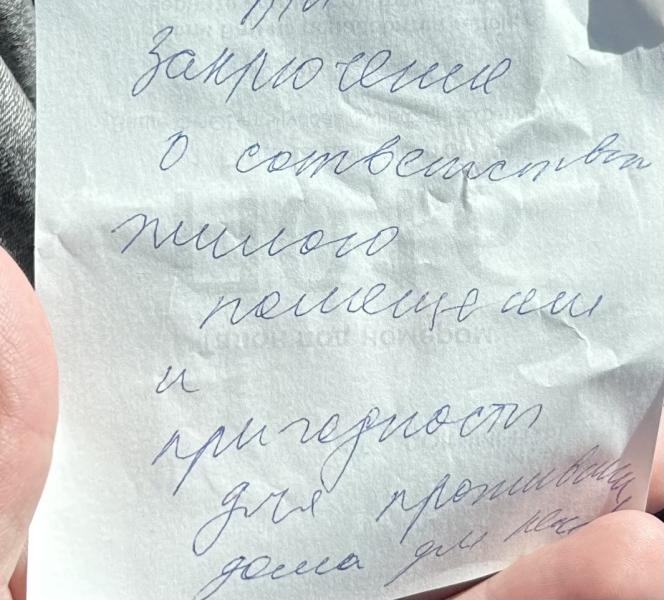 Заключение
о сответствии
жилого
помещении
и
пригодности
для проживания
дома для